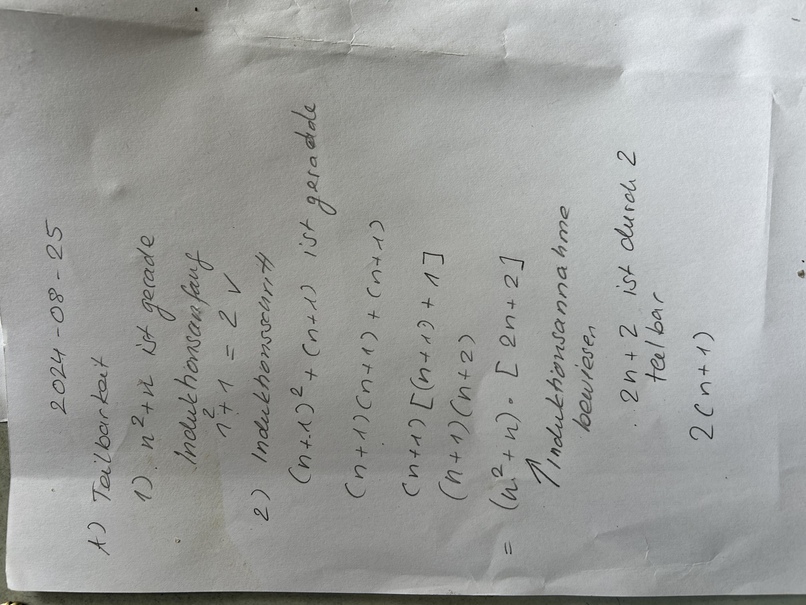 2024-08-25
A) Teilbarkeit
1) n²+n ist gerade
Induktionsanfang
1²+1 = 2 ✓
2) Induktionsschritt
(n+1)² + (n+1) ist geradde
(n+1)(n+1) + (n+1)
(n+1)[(n+1)+1]
(n+1)(n+2)
= (n²+n)·[2n+2]
↑ Induktionsannahme
bewiesen
2n+2 ist durch 2
teilbar
2(n+1)